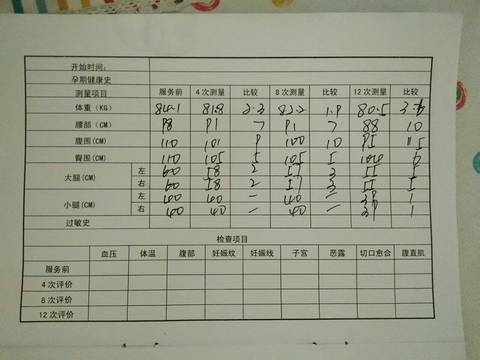 开始时间：
孕期健康史
测量项目 服务前 4次测量 比较 8次测量 比较 12次测量 比较
体重（KG） 84.1 81.8 2.3 82.2 1.9 80.5 3.6
腰部（CM） 98 91 7 91 7 88 10
腹围(CM) 110 101 9 100 10 95
臀围(CM) 110 105 5 105 5 104 6
大腿(CM) 左 60 58 2 57 3 55 5
右 60 58 2 57 3 55 5
小腿(CM) 左 40 40 一 40 一 39 1
右 40 40 一 40 一 39 1
过敏史
检查项目
血压 体温 腹部 妊娠纹 妊娠线 子宫 恶露 切口愈合 腹直肌
服务前
4次评价
8次评价
12次评价